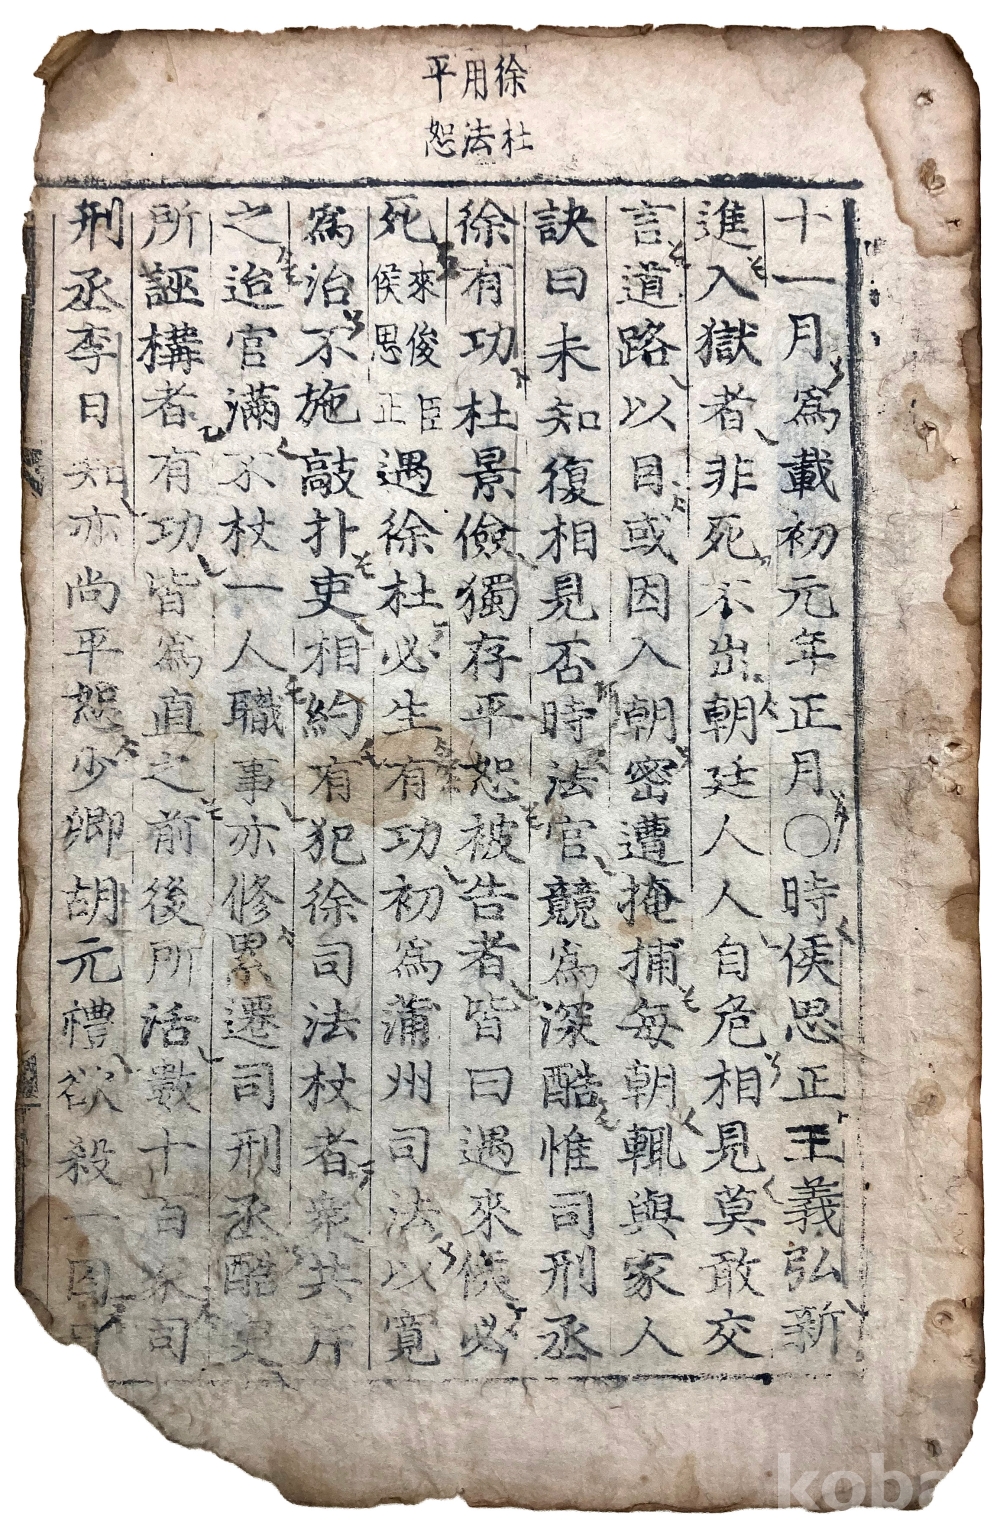 徐杜
用法
平恕
十一月爲載初元年正月○時侯思正王義弘新
進入獄者非死不出朝廷人人自危相見莫敢交
言道路以目或因入朝密遭掩捕每朝輒與家人
訣曰未知復相見否時法官競爲深酷惟司刑丞
徐有功杜景儉獨存平恕被告者皆曰遇來侯必
死來俊臣侯思正遇徐杜必生有功初爲蒲州司法以寬
爲治不施敲扑吏相約有犯徐司法杖者衆共斥
之迨官滿不杖一人職事亦修累遷司刑丞酷吏
所誣構者有功皆爲直之前後所活數十百家司
刑丞李日知亦尚平恕少卿胡元禮欲殺一囚日
koba